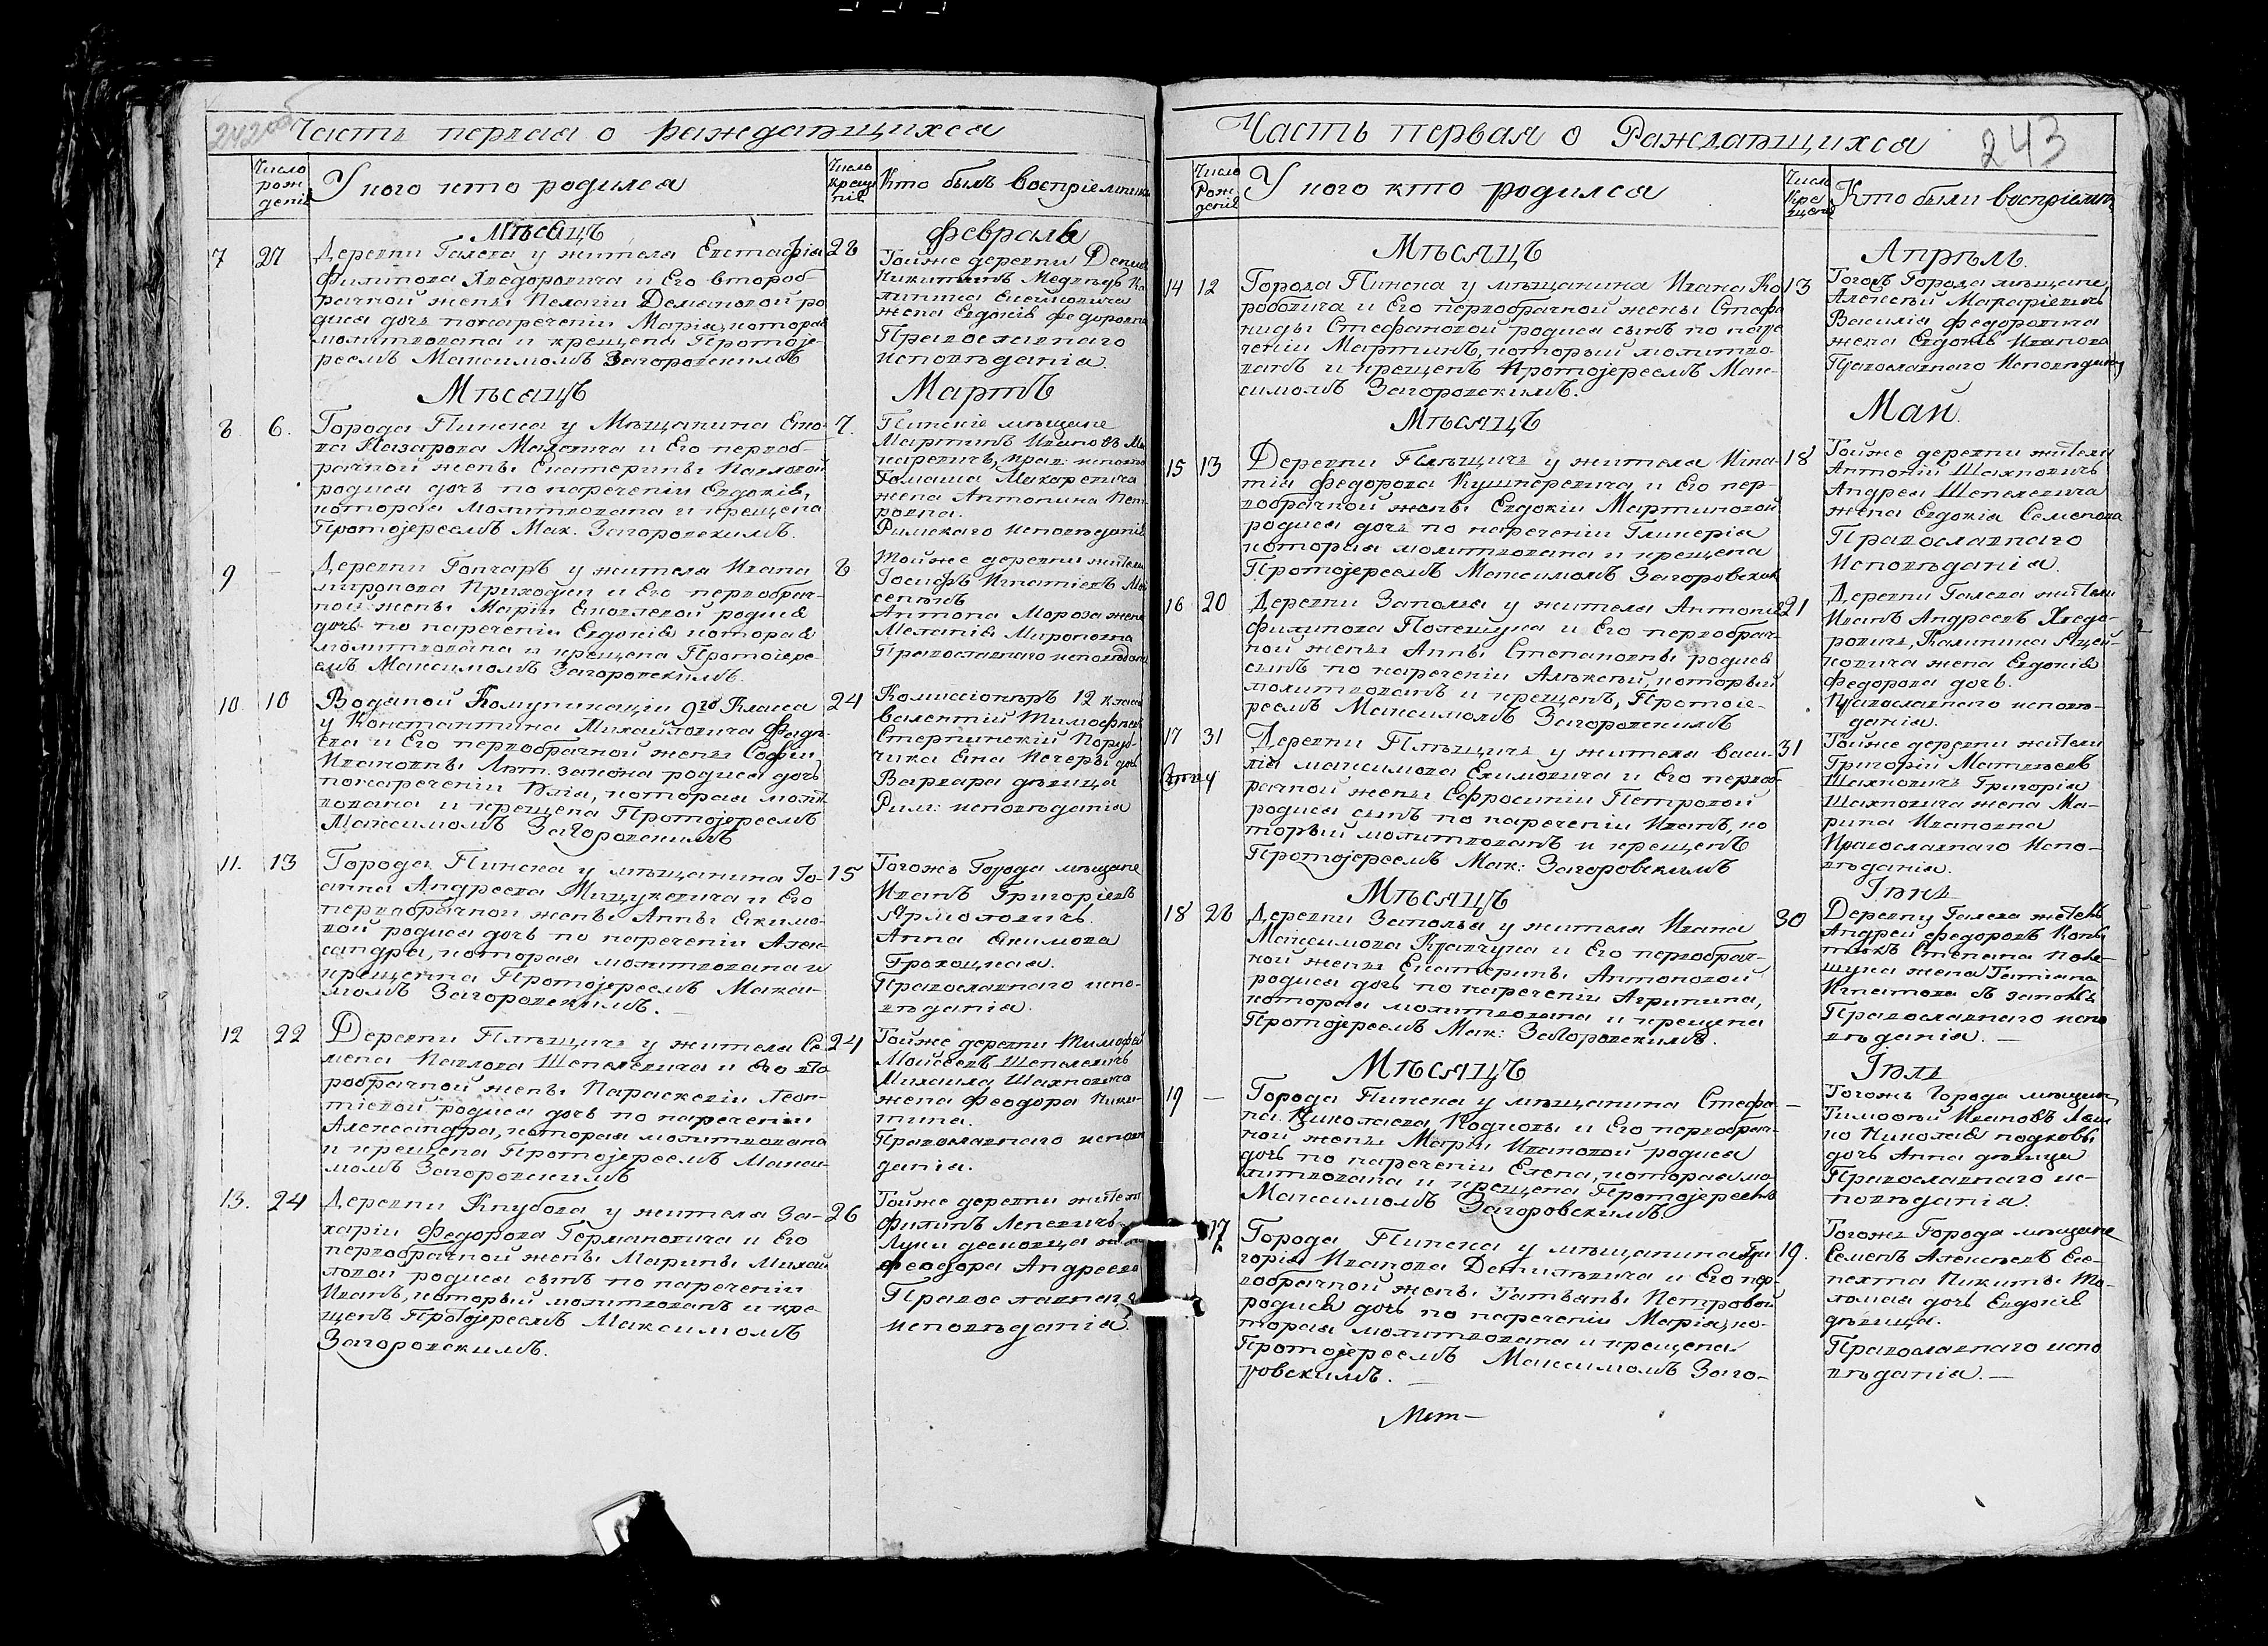 242об
Часть первая о раждающихся
Число рождения
У кого кто родился
Число крещения
Кто былъ Воспріемник
Мѣсяцъ
Февраль
7
27
Деревни Галева у жителя Евстафія
Филипова Хведоровича и Его втароб-
рачной жены Пелагіи Демяновой ро
дися дочь понаречении Марія, которая
молитвована и крещена Протоје-
реемъ Максимомъ Загоровскимъ
28
Тойже деревни
Никитинъ Медведь Ка
жена Евдокія Федоровна
Православнаго
исповѣданія.
Мѣсяцъ
Мартъ
8.
6.
Города Пинска у Мѣщанина
Назарова и Его первоб-
рачной жены Екатерины Павловой
родися дочь по наречении Евдокія,
которая молитвована и крещена
Протојереемъ Мак. Загоровскимъ.
7.
Пинскіе мѣщане
Мартинъ Ивановъ Ма
каревичъ, прав: исповѣ
Томаша Макаревича
жена Антонина Пет
ровна.
Римскаго Исповѣданія
9
—
Деревни Гончаръ у жителя Ивана
миронова Приходки и Его первобрач-
ной жены Маріи Яковлевой родися
дочь по наречении Евдокія которая
молитвована и крещена Протоіере-
емъ Максимомъ Загоровскимъ.
8
Тойже деревни жители
Іосифъ Игнатіевъ
Антона Мороза жена
Меланія Мироновна
Православнаго исповѣдані
10.
10
Водяной Комуникаціи 9го Класса
у Константина Михайловича Фадѣ-
ева и Его первобрачной жены Софіи
Ивановны Лют. закона родися дочь
понаречении Юлія, которая молит
вована и крещена Протојереемъ
Максимомъ Загоровскимъ
24
Комиссіонъръ 12 класса
валентій Тимофѣевъ
Стерпинскій Поруб-
чика Яна Печеры доч
Варвара дѣвица
Рим: исповѣданія
11.
13
Города Пинска у мѣщанина Іо-
анна Андреева Мицукевича и Его
первобрачной жены Анны Якимо-
вой родися дочь по наречении Алек-
сандра, которая молитвована и
крещенна Протојереемъ Макси-
момъ Загоровскимъ. —
15
Тогожъ Города мѣщане
Иванъ Григоріевъ
Ярмоловичъ.
Анна Якимова
Грохоцкая.
Православнаго испо-
вѣданія.
12
22
Деревни Плещичь у жителя Се-
мена Павлова Шепелевича и его вто
робрачной жены Параскевіи Леон-
тіевой родися дочь по наречении
Александра, которая молитвована
и крещена Протојереемъ Макси-
момъ Загоровскимъ
24
Тойже деревни Тимофей
Моисеевъ Шепелевичъ
Михаила Шахновича
жена Феодора Ники-
тина.
Православнаго исповѣ
данія.
13.
24
Деревни Кнубова у жителя За-
харіи Федорова Германовича и Его
первобрачной жены Марины Михай
ловой родися сынъ по наречении
Иванъ, который молитвованъ и кре-
щенъ Протојереемъ Максимомъ
Загоровскимъ.
26
Тойже деревни жители
Филипъ Лепевичъ
Луки
Феодора Андреева
Православнаг
исповѣданія.
Часть первая о Раждающихся
243
Число Рождения
У кого кто родился
Число Крещения
Кто были воспріемн
Мѣсяцъ
Апрѣль.
14
12
Города Пинска у мѣщанина Ивана Ко
робовича и Его первобрачной жены Стефа
ниды Стефановой родися сынъ по наре
чении Мартинъ, который молитво-
ванъ и крещенъ Протојереемъ Мак-
симомъ Загоровскимъ.
13
Тогожъ Города мѣщане,
Алексѣй Макаріевичъ
Василія Федоровича
жена Евдокія Иванова
Православнаго Исповѣдани
Мѣсяцъ
Май.
15
13
Деревни Плещичь у жителя Игна-
тія Федорова Кушнеревича и Его пер-
вобрачной жены Евдокіи Мартиновой
родися дочь по наречении Гликерія
которая молитвована и крещена
Протојереемъ Максимомъ Загоровским
18
Тойже деревни жители
Антоній Шахновичъ
Андрея Шепелевича
жена Евдокія Семенова
Православнаго
Исповѣданія.
16
20
Деревни Заполья у жителя Антонія
Филипова Полешука и Его первобрач-
ной жены Анны Степановны родися
сынъ по наречении Алѣксѣй, который
молитвованъ и крещенъ, Протоіе-
реемъ Максимомъ Загоровскимъ
21
Деревни Галева жители
Иванъ Андреевъ Хведо-
ровичъ, Калиника
жена Евдокія
Федорова дочь.
Православнаго исповѣ-
данія.
17
31
Деревни Плещичь у жителя васи-
лія максимова Якимовича и Его первоб-
рачной жены Ефросиніи Петровой
родися сынъ по наречении Иванъ, ко
торый молитвованъ и крещенъ
Протојереемъ Мак: Загоровскимъ
31
Тойже деревни жители
Григорій Матвѣевъ
Шахновичъ Григорія
Шахновича жена Ма-
рина Ивановна
Православнаго Испо-
вѣданія.
Мѣсяцъ
Іюнь
18
28
Деревни Заполья у жителя Ивана
Максимова Кравчука и Его первобрач-
ной жены Екатерины Антоновой
родися дочь по наречении Агрипина,
которая молитвована и крещена
Протојереемъ Мак: Загоровскимъ.
30
Деревну Галева житель
Андрей Федоровъ
Степана Поле-
щука жена Татіана
Игнатова въ заполья
Православнаго испо
вѣданія. —
Мѣсяцъ
Іюль
19
—
Города Пинска у мѣщанина Стефа-
на Николаева Подковы и Его первобрач-
ной жены Маріи Ивановой родися
дочь по наречении Елена, которая мо-
литвована и крещена Протојереемъ
Максимомъ Загоровскимъ.
—
Тогожъ Города мѣщан,
Тимофей Ивановъ
Николая подковы
дочь Анна дѣвица
Православнаго ис-
повѣданія.
17
Города Пинска у мѣщанина Гри
горія Иванова Данилѣвича и Его пер-
вобрачной жены Татьяны Петровой
родися дочь по наречении Марія, ко-
торая молитвована и крещена
Протојереемъ Максимомъ Заго-
ровскимъ. —
19.
Тогожъ Города мѣщане
Семенъ Алексѣевъ
Никиты
дочь Евдокія
дѣвица.
Православнаго испо
вѣданія. —
Мет—